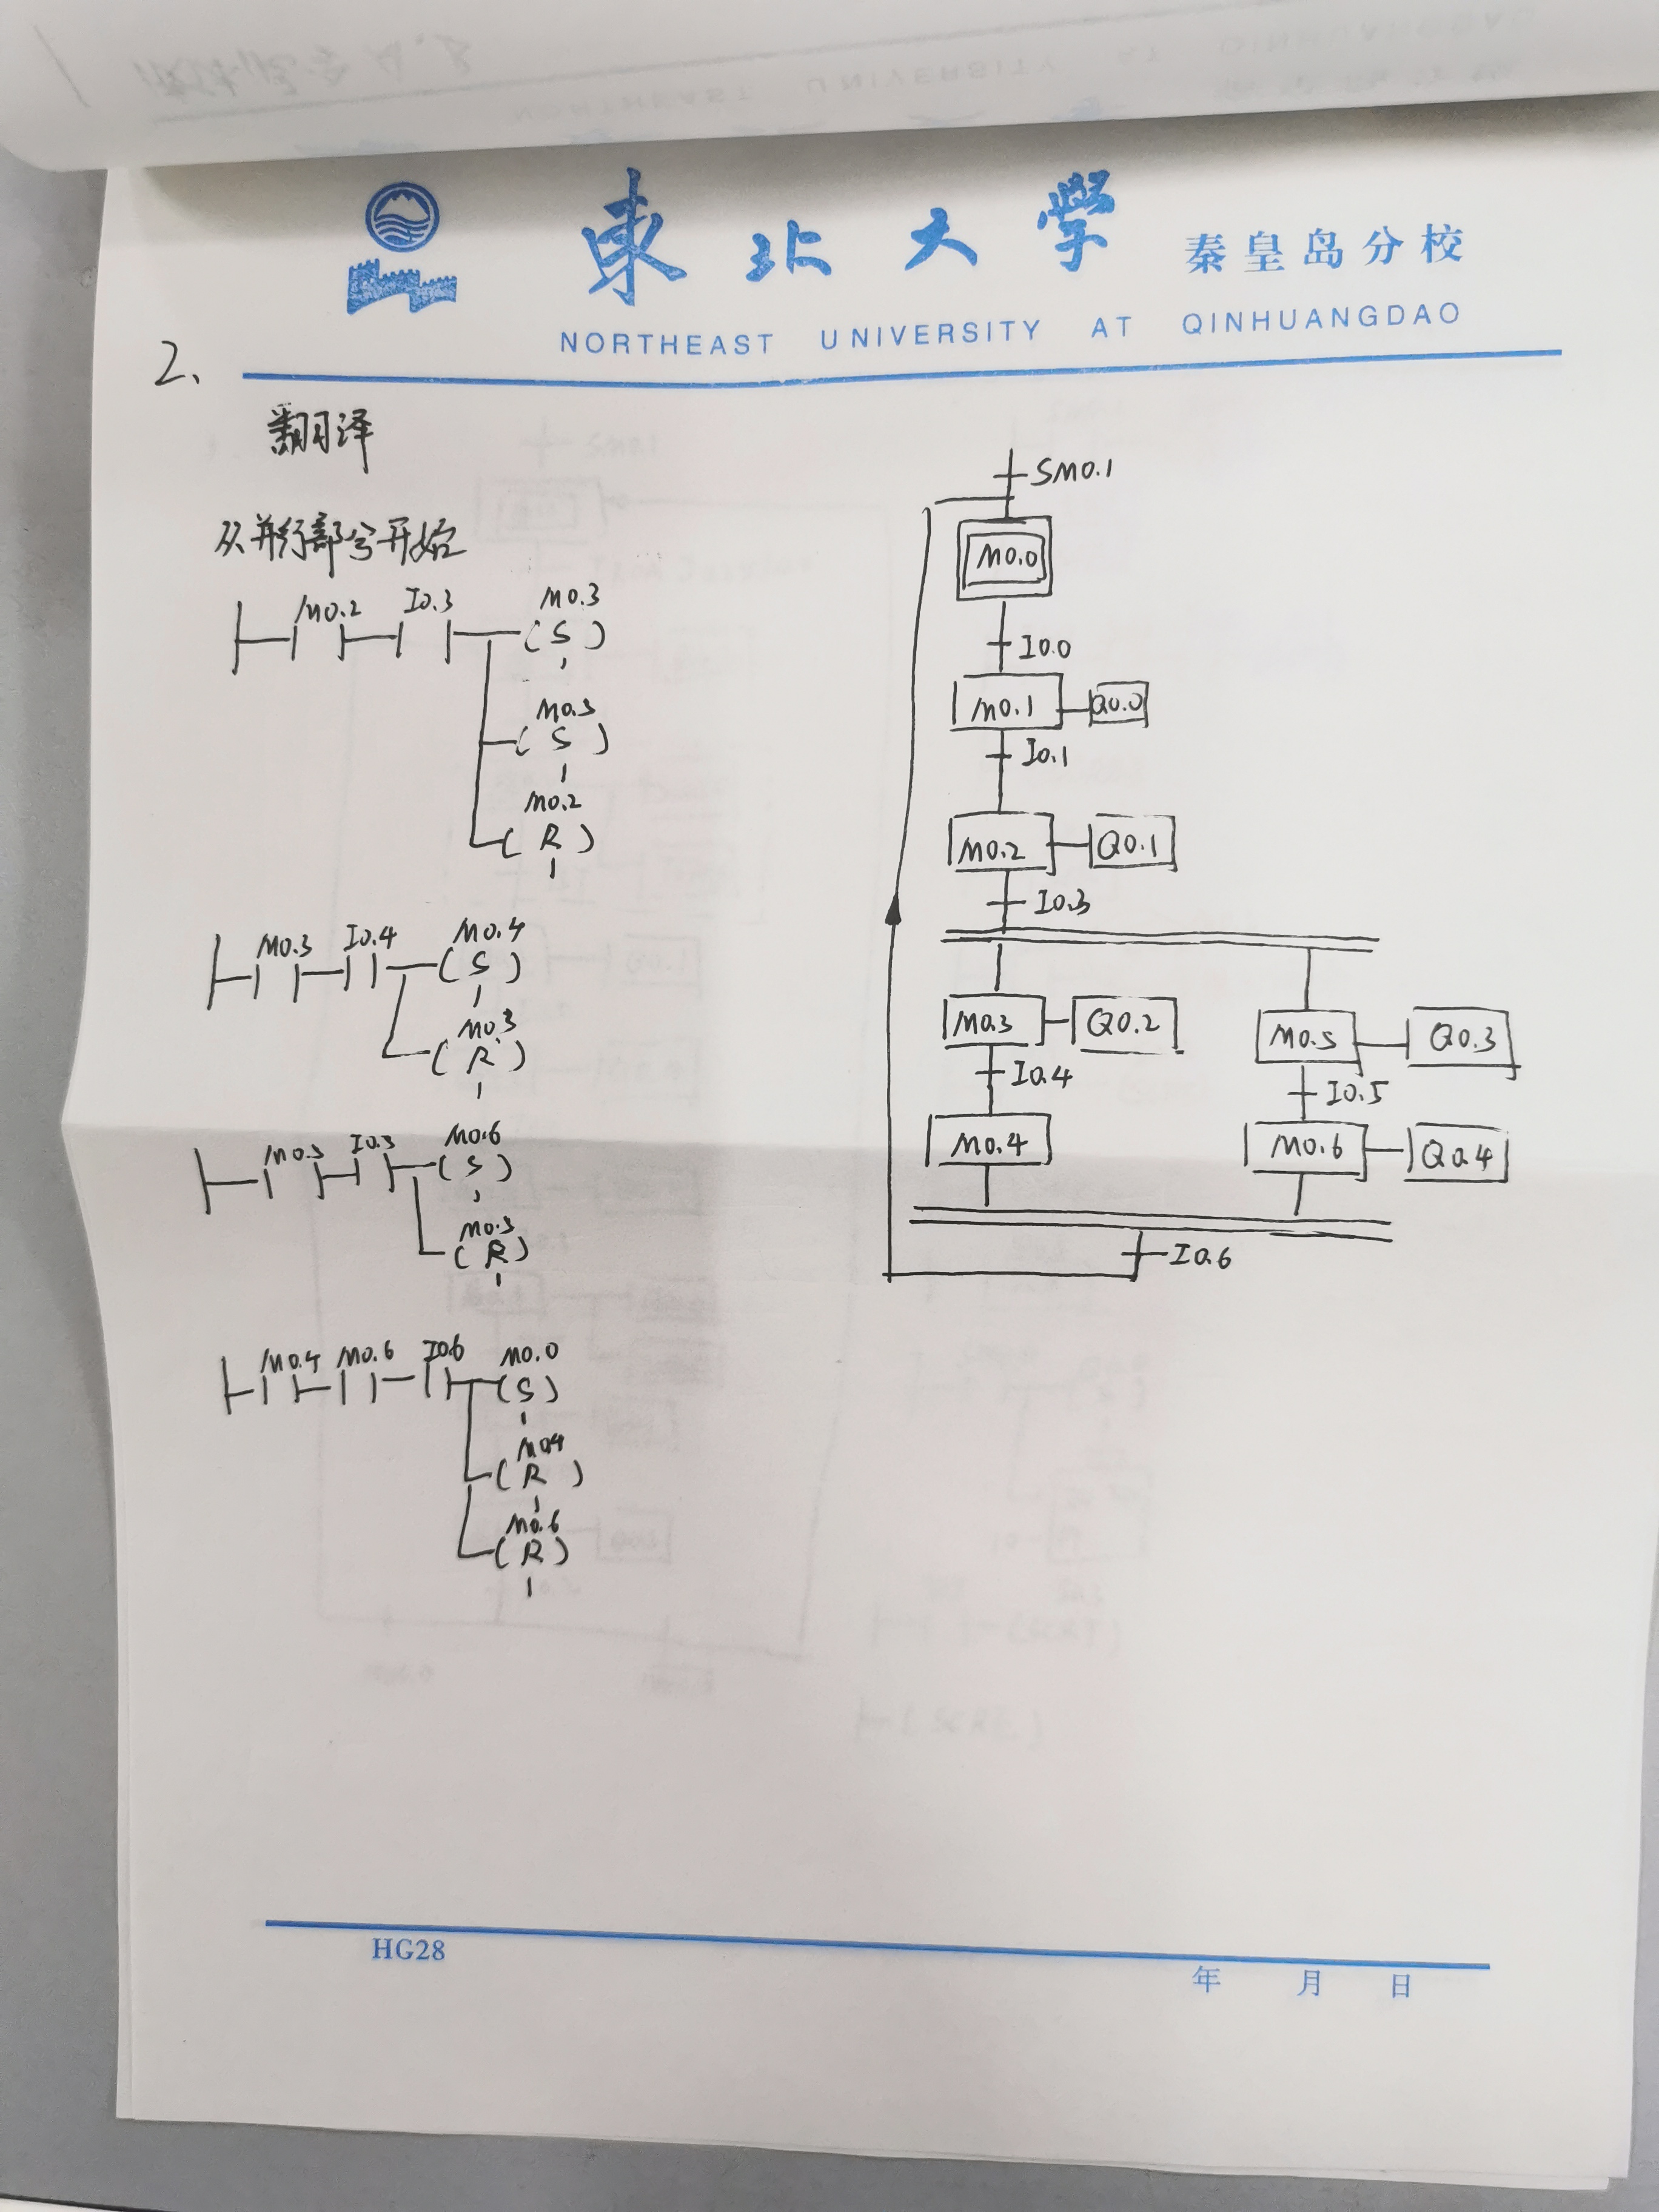 東北大學 秦皇岛分校
NORTHEAST UNIVERSITY AT QINHUANGDAO
2、
翻译
从并行部分开始
M0.2 I0.3 M0.3
( S )
M0.5
( S )
M0.2
( R )
M0.3 I0.4 M0.4
( S )
M0.3
( R )
M0.5 I0.5 M0.6
( S )
M0.5
( R )
M0.4 M0.6 I0.6 M0.0
( S )
M0.4
( R )
M0.6
( R )
SM0.1
M0.0
I0.0
M0.1 Q0.0
I0.1
M0.2 Q0.1
I0.3
M0.3 Q0.2 M0.5 Q0.3
I0.4 I0.5
M0.4 M0.6 Q0.4
I0.6
HG28
年 月 日